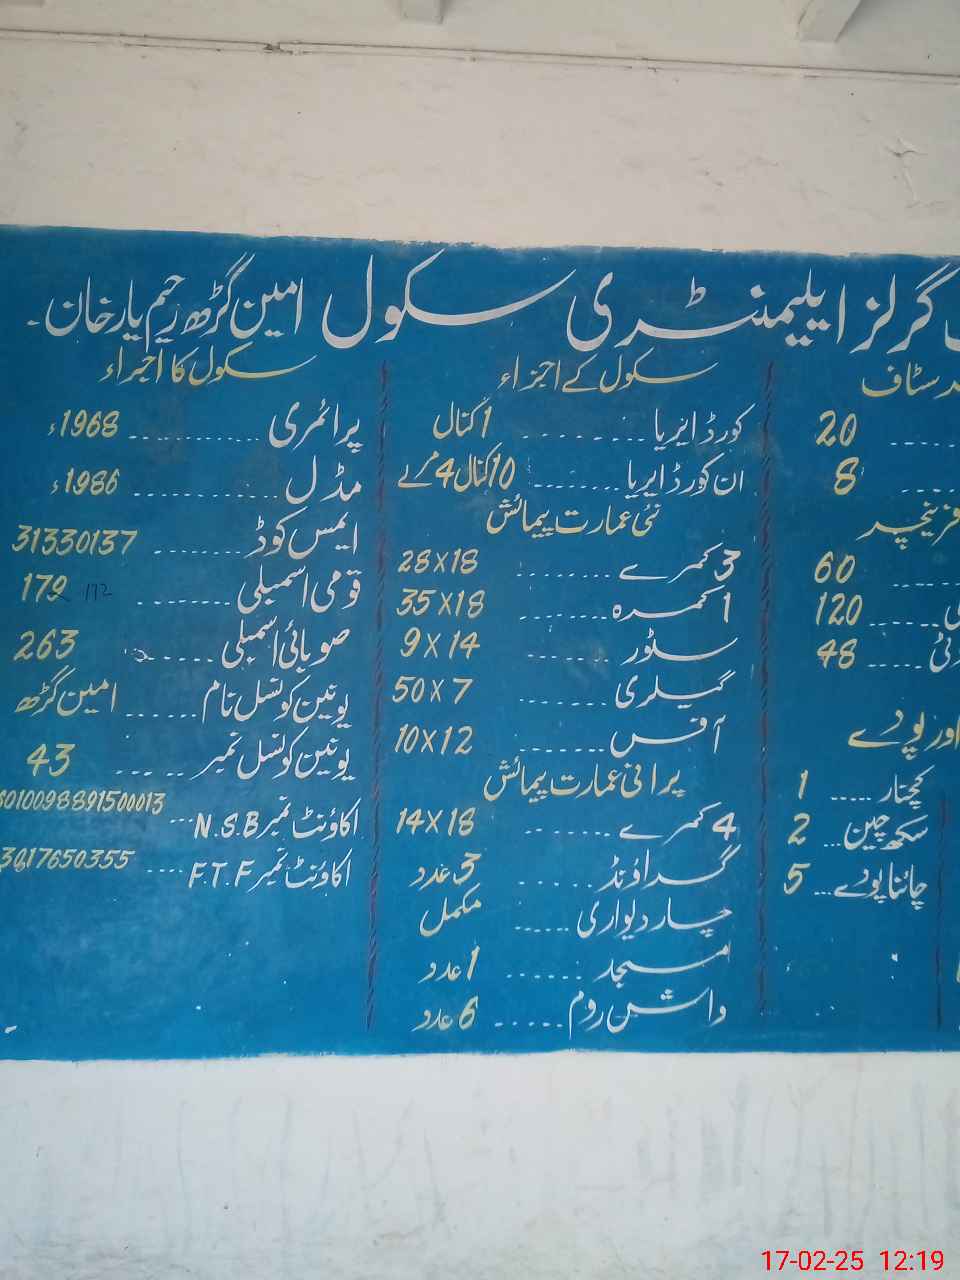 گرلز ایلیمنٹری سکول امین گڑھ رحیم یار خان۔
سٹاف
20
8
فرنیچر
60
120
48
اور پودے
کچنار ..... 1
سکھ چین ... 2
چائنا پودے ... 5
سکول کے اجزاء
کورڈ ایریا ........ 1 کنال
ان کورڈ ایریا ........ 10 کنال 4 مرلے
نئی عمارت پیمائش
3 کمرے ........ 28x18
1 کمرہ ........ 35x18
سٹور ........ 9x14
گیلری ........ 50x7
آفس ....... 10x12
پرانی عمارت پیمائش
4 کمرے ........ 14x18
گراؤنڈ ...... 3 عدد
چار دیواری ..... مکمل
مسجد ...... 1 عدد
واش روم ..... 6 عدد
سکول کا اجراء
پرائمری ............ 1968ء
مڈل ............ 1986ء
ایمس کوڈ ........ 31330137
قومی اسمبلی ........ 179 172
صوبائی اسمبلی ...... 263
یونین کونسل نام ...... امین گڑھ
یونین کونسل نمبر ..... 43
اکاؤنٹ نمبر N.S.B ... 6010098891500013
اکاؤنٹ نمبر F.T.F .... 3017650355
17-02-25 12:19